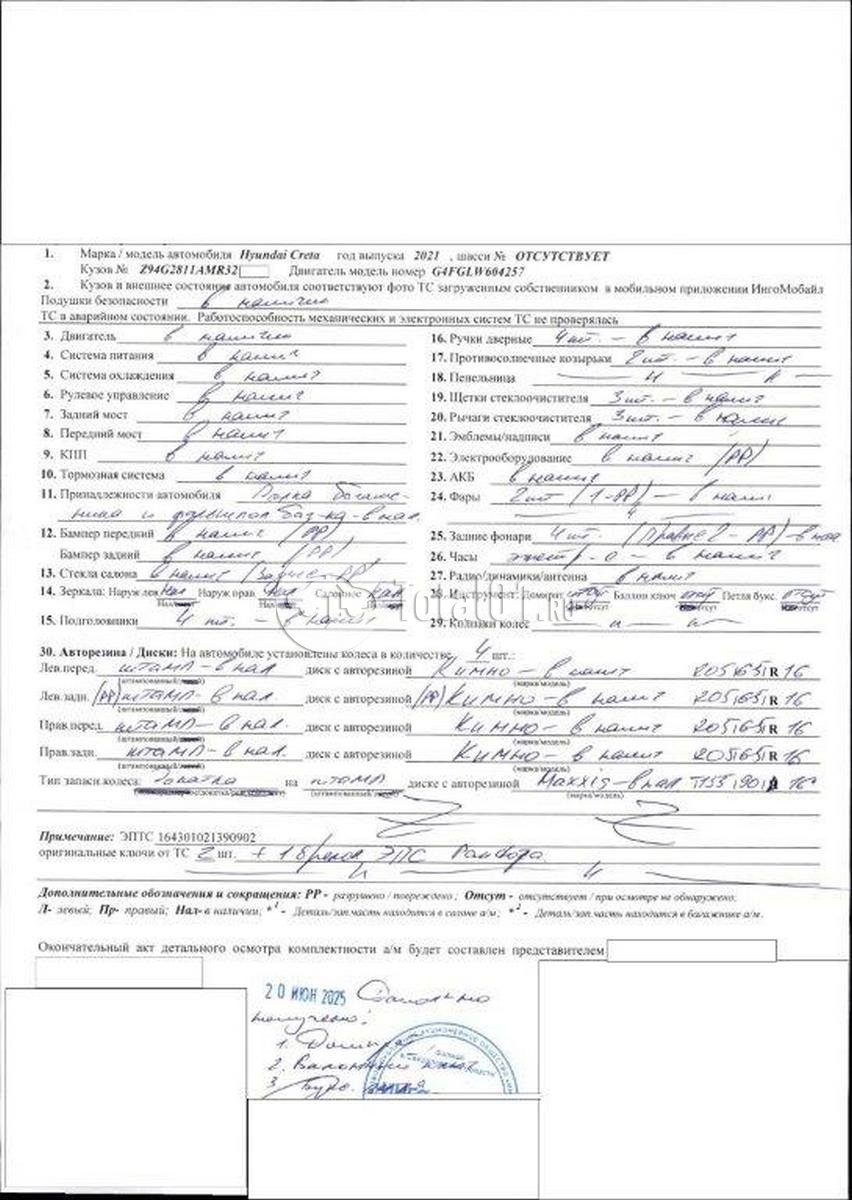 1. Марка / модель автомобиля Hyundai Creta год выпуска 2021 , шасси № ОТСУТСТВУЕТ
Кузов № Z94G2811AMR32 Двигатель модель номер G4FGLW604257
2. Кузов и внешнее состояние автомобиля соответствуют фото ТС загруженным собственником в мобильном приложении ИнгоМобайл
Подушки безопасности в наличии
ТС в аварийном состоянии. Работоспособность механических и электронных систем ТС не проверялась
3. Двигатель в наличии
4. Система питания в налич
5. Система охлаждения в налич
6. Рулевое управление в налич
7. Задний мост в налич
8. Передний мост в налич
9. КПП в налич
10. Тормозная система в налич
11. Принадлежности автомобиля
12. Бампер передний в налич (РР)
Бампер задний в налич (РР)
13. Стекла салона в налич (Заднее-РР)
14. Зеркала: Наруж лев нал Наруж прав. нал Салонное нал
15. Подголовники 4 шт. - в налич
16. Ручки дверные 4 шт. - в налич
17. Противосолнечные козырьки 2 шт. - в налич
18. Пепельница
19. Щетки стеклоочистителя 3 шт. - в налич
20. Рычаги стеклоочистителя 3 шт. - в налич
21. Эмблемы/надписи в налич
22. Электрооборудование в налич (РР)
23. АКБ в налич
24. Фары 2 шт (1-РР) - в налич
25. Задние фонари 4 шт.
26. Часы электр-е - в налич
27. Радио/динамики/антенна в налич
28. Инструмент: Домкрат отсут Баллон ключ отсут Петля букс. отсут
29. Колпаки колес
30. Авторезина / Диски: На автомобиле установлены колеса в количестве 4 шт.:
Лев.перед. штамп - в нал диск с авторезиной Кимно - в налич 205/65/R 16
(марка/модель)
Лев.задн. (РР) штамп - в нал. диск с авторезиной (РР) Кимно - в налич 205/65/R 16
(марка/модель)
Прав.перед. штамп - в нал. диск с авторезиной Кимно - в налич 205/65/R 16
(марка/модель)
Прав.задн. штамп - в нал. диск с авторезиной Кимно - в налич 205/65/R 16
(марка/модель)
Тип запасн.колеса: докатка на штамп диске с авторезиной Maxxis - в нал T155/90/ 16
(марка/модель)
Примечание: ЭПТС 164301021390902
оригинальные ключи от ТС 2 шт. + 1 брелок
Дополнительные обозначения и сокращения: РР - разрушено / повреждено ; Отсут - отсутствует / при осмотре не обнаружено;
Л- левый; Пр- правый; Нал- в наличии; *1 - Деталь/зап.часть находится в салоне а/м; *2 - Деталь/зап.часть находится в багажнике а/м.
Окончательный акт детального осмотра комплектности а/м будет составлен представителем
20 ИЮН 2025
получено:
1.
2.
3.
Total01.RU